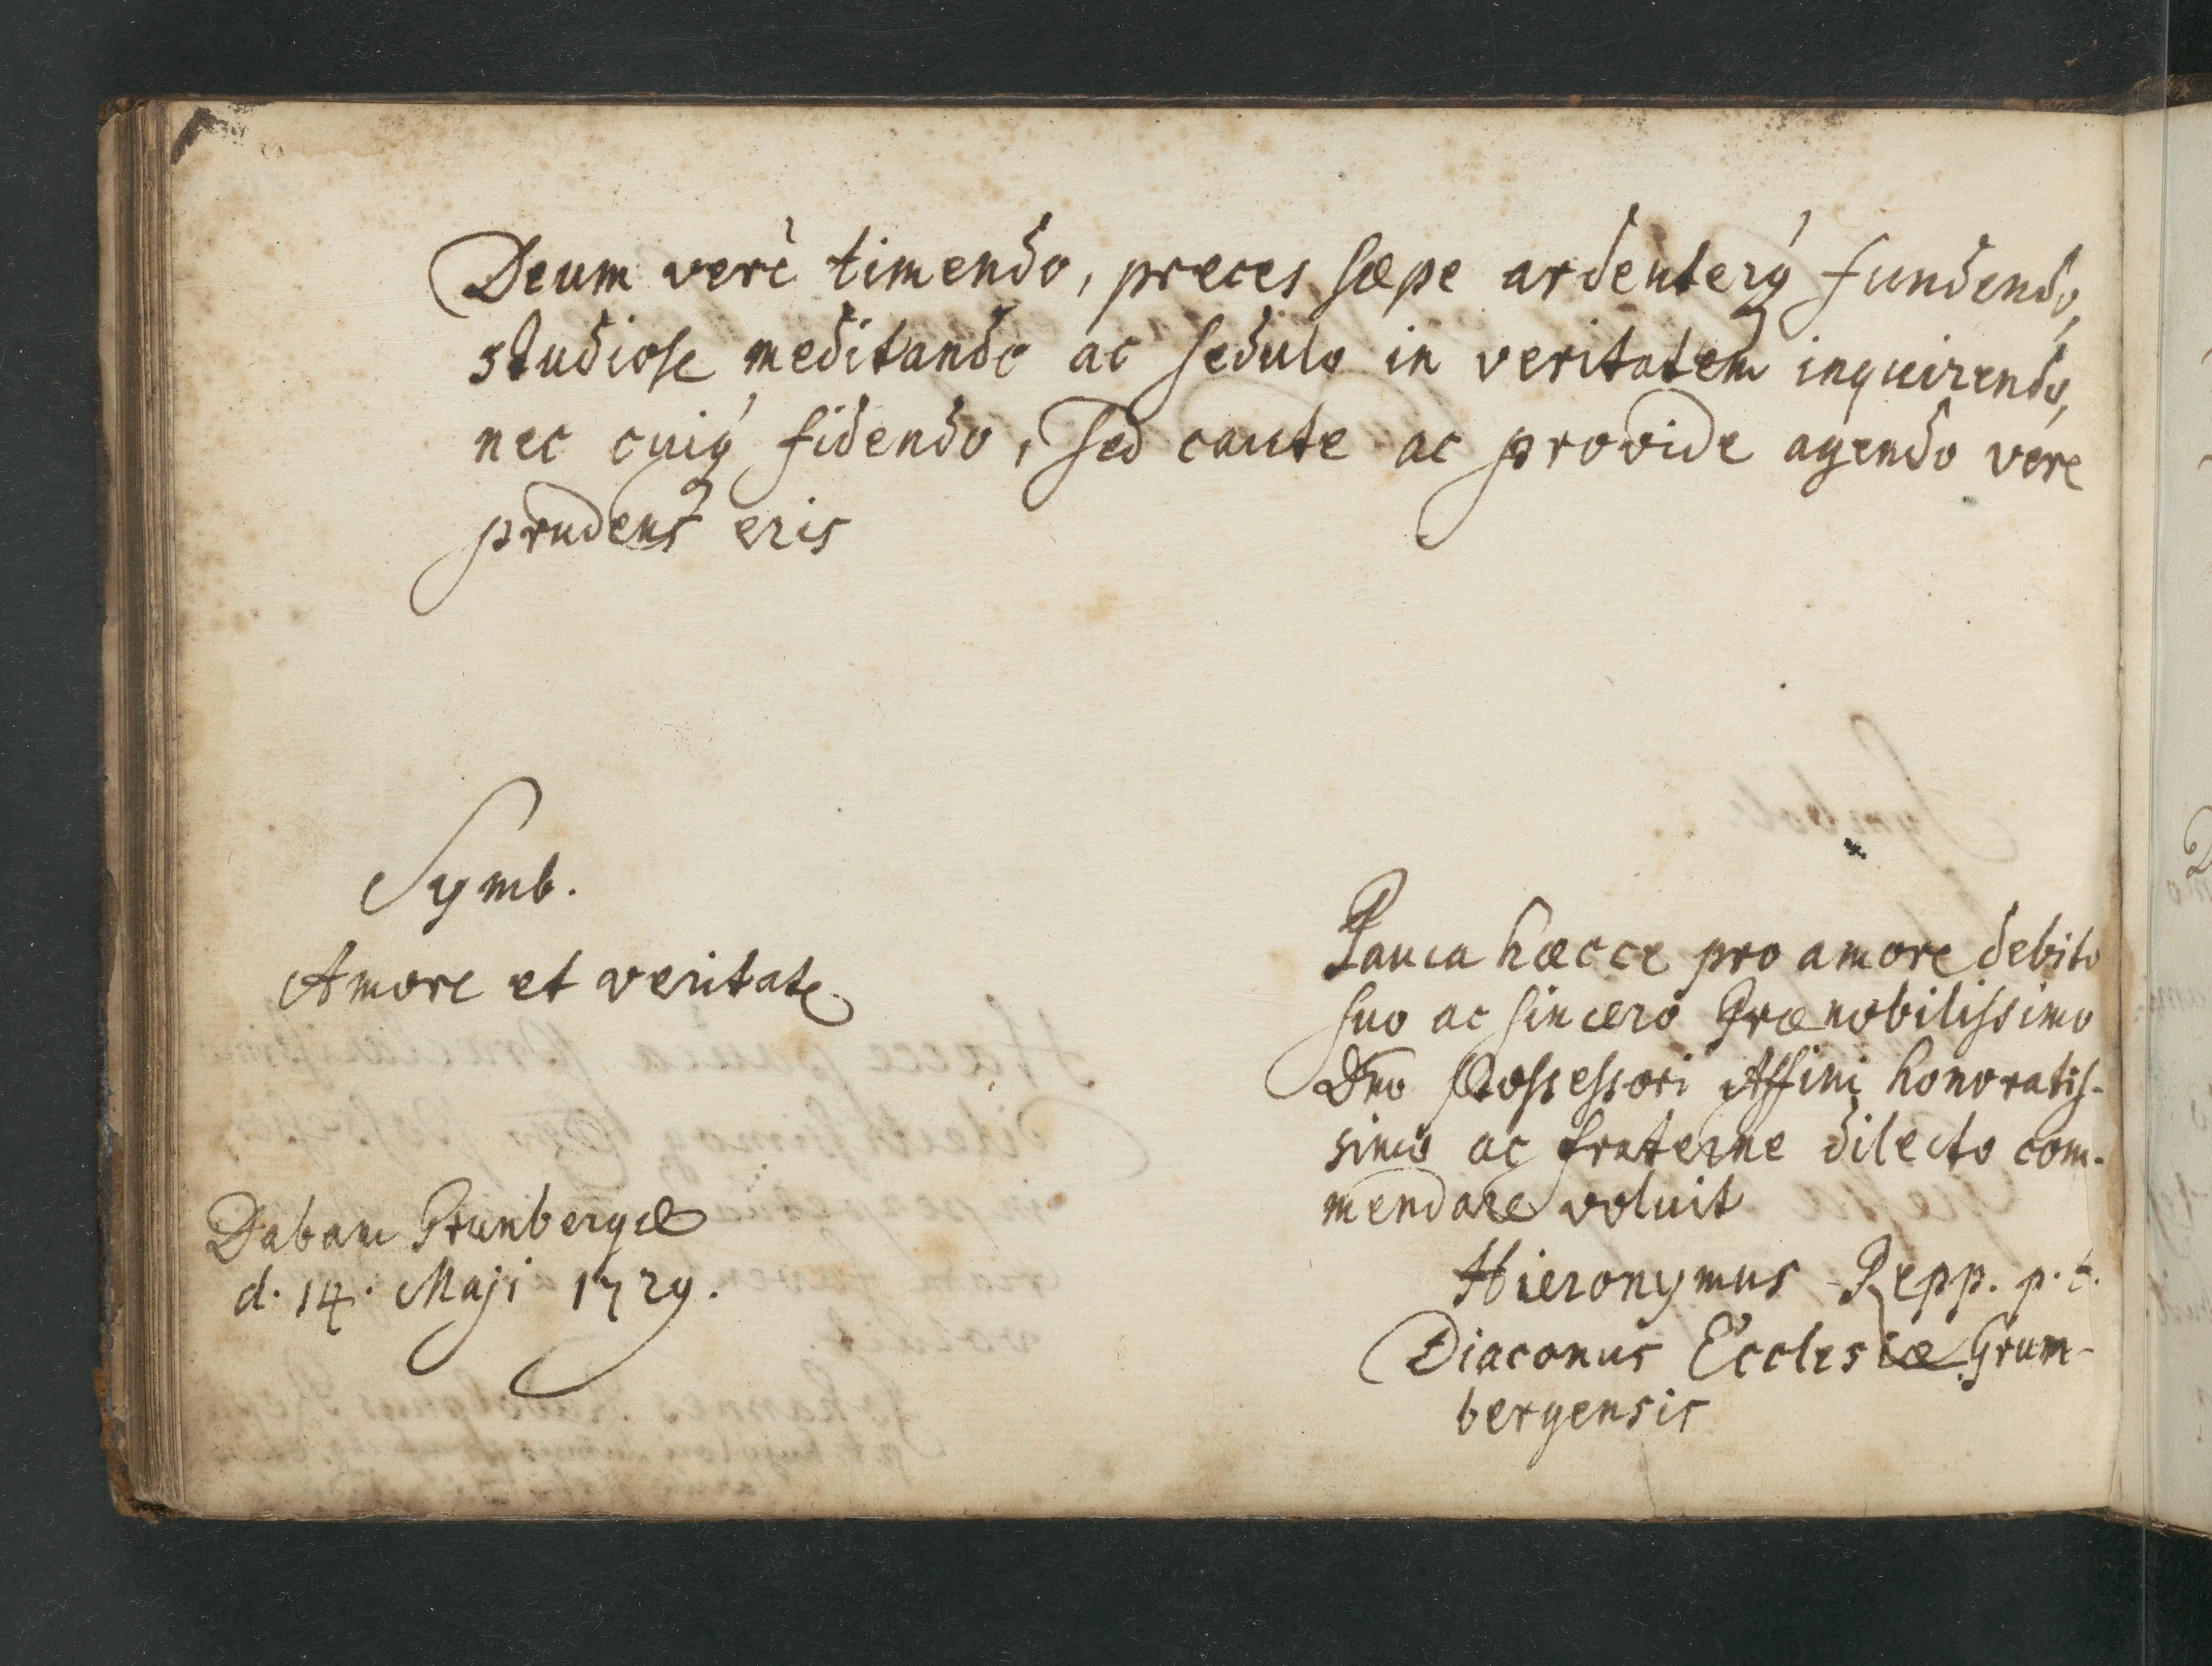 Deum verè timendo, preces sæpe ardenterq́ fundendo,
studiose meditando ac sedulo in veritatem inquirendo,
nec cuiq́ fidendo, sed caute ac provide agendo vere
prudens eris
Symb.
Amore et veritate
Dabam Grunbergæ
d. 14. Maji 1729.
Pauca hæcce pro amore debito
suo ac sincero Prænobilissimo
Dno Possessori Affini honoratis-
simo ac fraterne dilecto com-
mendare voluit
Hieronymus Repp. p. t.
Diaconus Ecclesiæ Grun-
bergensis